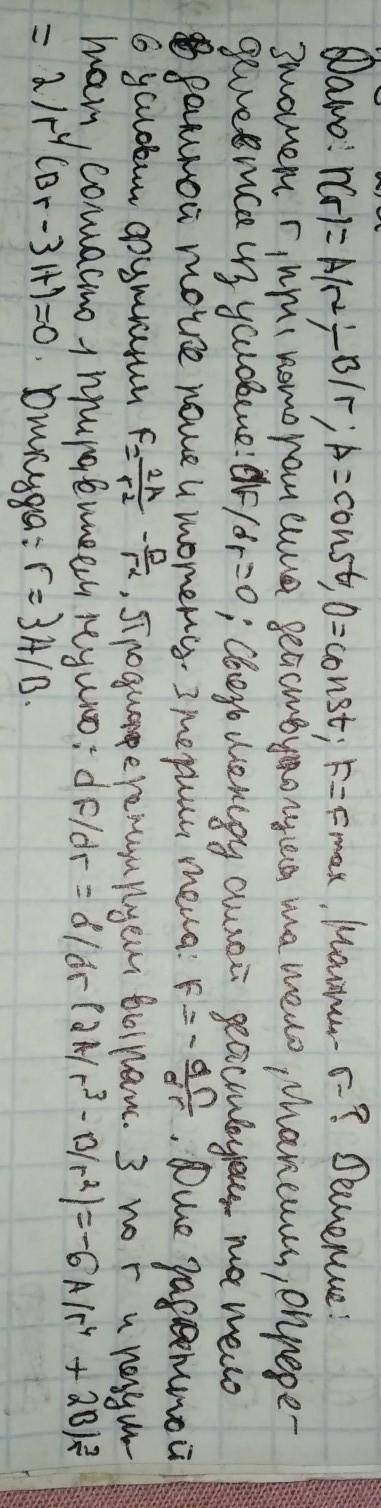 Дано: П(r)=A/r²-B/r; A=const, B=const; F=Fmax, Найти- r-? Решение:
Значен. r, при котором сила действующая на тело, максим, опреде-
деляется из условие: dF/dr=0; Связь между силой действующ. на тело
в данной точке поле и потенц. энергии тела: F=-dП/dr. Для заданной
в условии функции F=2A/r²-B/r², Продифференцируем выраж. 3 по r и резуль-
тат, согласно 1 приравняем нулю: dF/dr=d/dr(2A/r³-B/r²)=-6A/r⁴+2B/r³
=2/r⁴(Br-3A)=0. Откуда: r=3A/B.